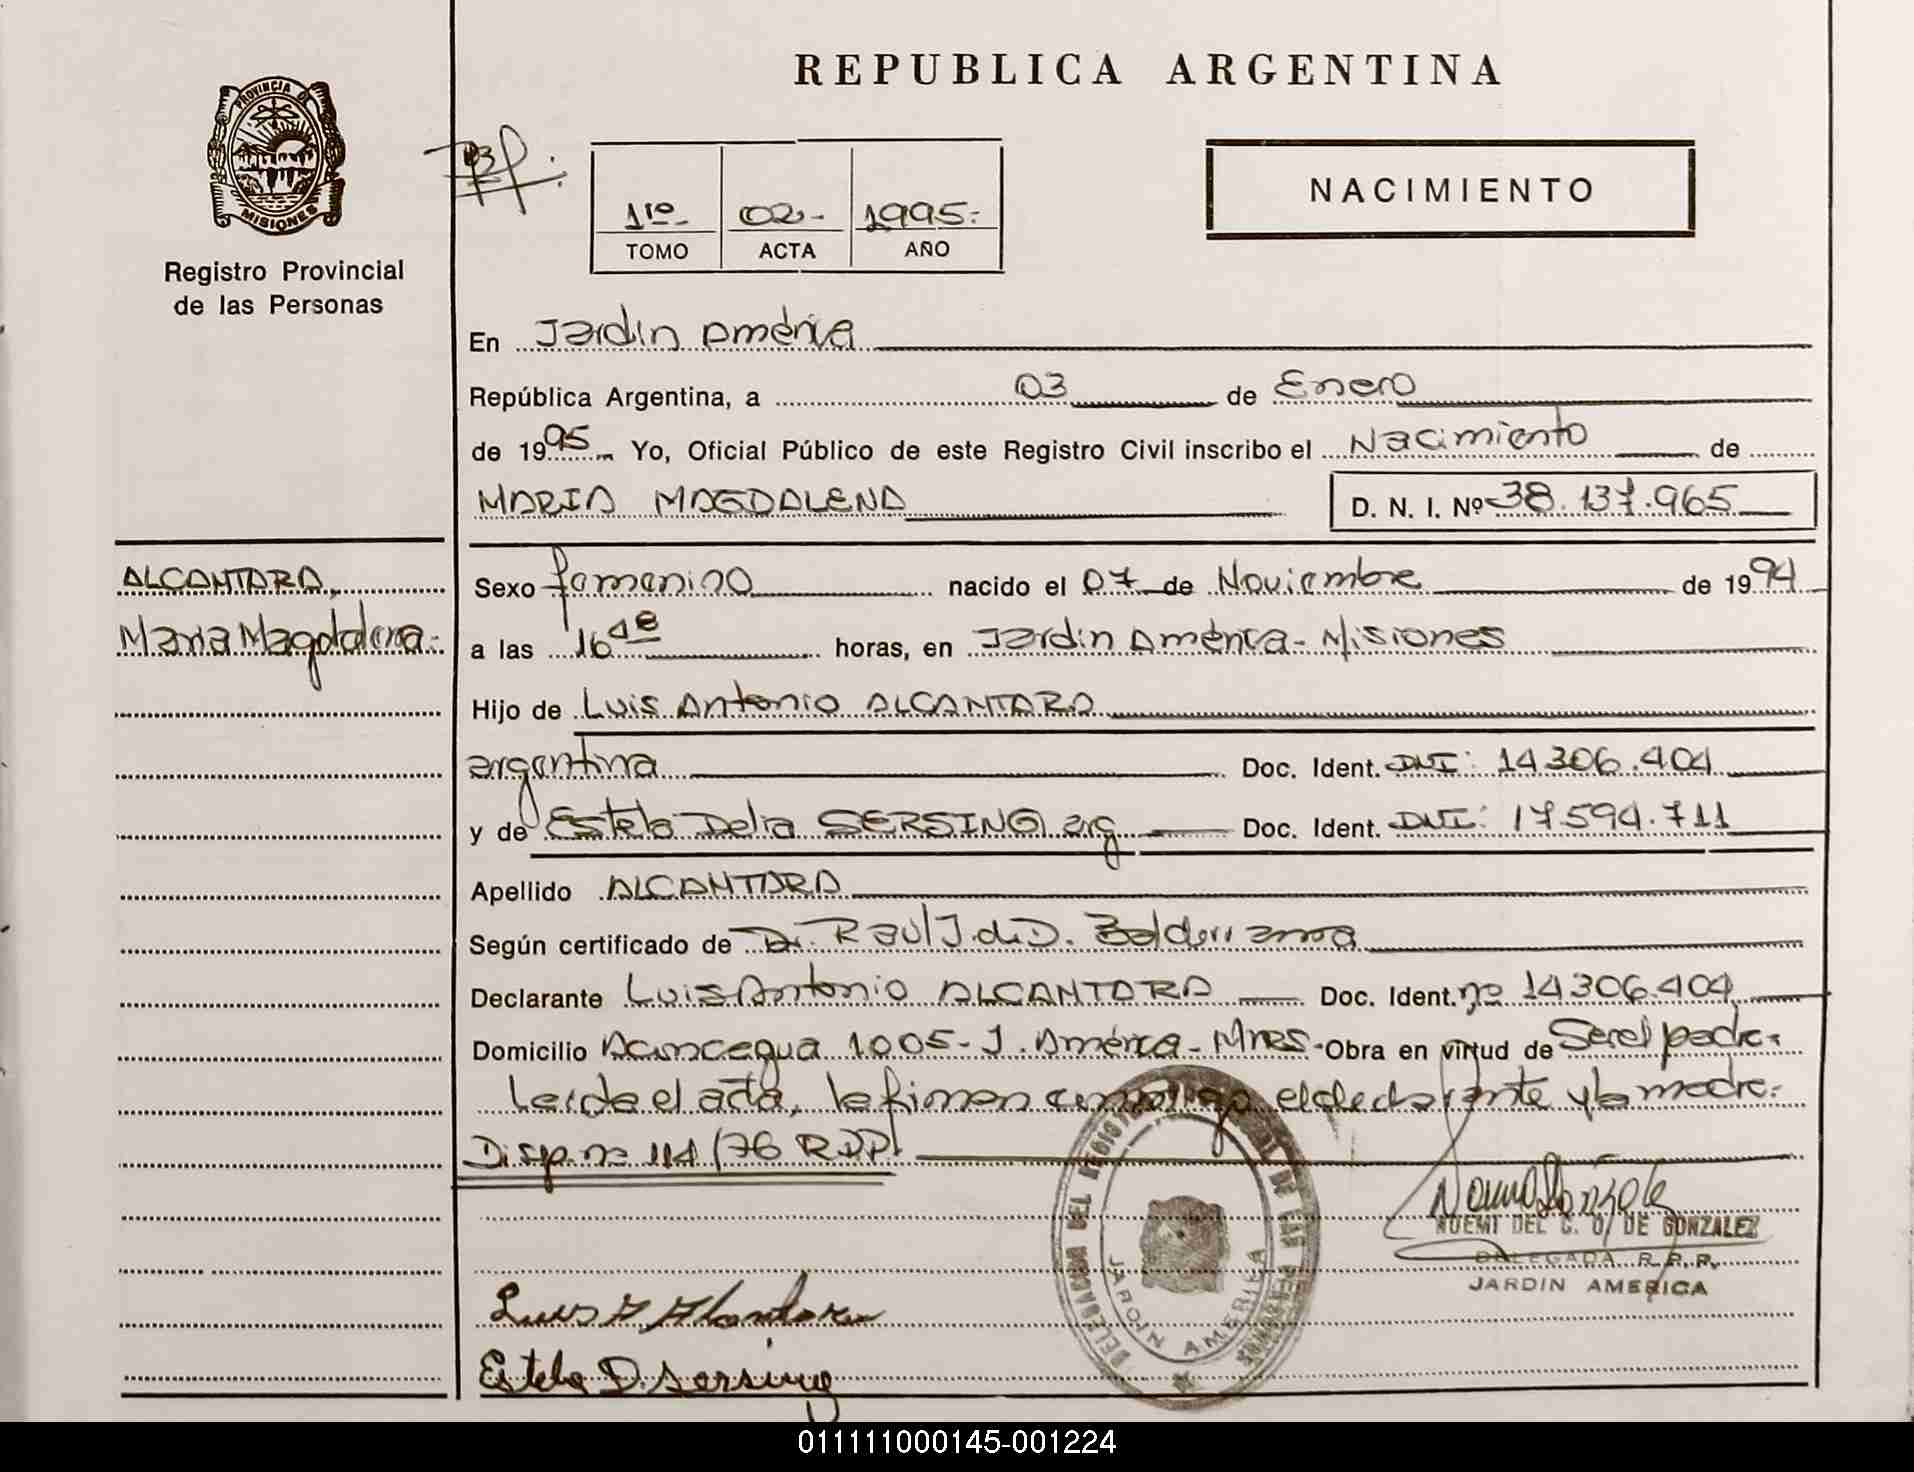 REPUBLICA ARGENTINA
PROVINCIA DE
MISIONES
Registro Provincial
de las Personas
1ro - 02 - 1995 -
TOMO ACTA AÑO
NACIMIENTO
En Jardin América
República Argentina, a 03 de Enero
de 1995 Yo, Oficial Público de este Registro Civil inscribo el Nacimiento de
MARIA MAGDALENA D. N. I. Nº 38.137.965
ALCANTARA,
Maria Magdalena.-
Sexo femenino nacido el 07 de Noviembre de 1994
a las 16 horas, en Jardin América - Misiones
Hijo de Luis Antonio ALCANTARA
argentina Doc. Ident. DNI: 14306.404
y de Estela Delia SERSING arg Doc. Ident. DNI: 17594.711
Apellido ALCANTARA
Según certificado de Dr. Raúl J. de D. Balderrama
Declarante Luis Antonio ALCANTARA Doc. Ident. nº 14306.404
Domicilio Aconcagua 1005 - J. América - Mnes - Obra en virtud de Ser el padre.
Leida el acta, la firman conmigo el declarante y la madre.
Disp. nº 114/76 RPP.
NOEMI DEL C. O. DE GONZALEZ
DELEGADA R.P.P.
JARDIN AMERICA
JARDIN AMERICA
Luis A Alcantara
Estela D. Sersing
011111000145-001224